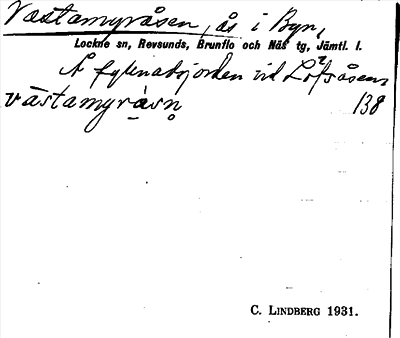 Västamyråsen, ås i Byn,
Lockne sn, Revsunds, Brunflo och Näs tg, Jämtl. l.
Å vid Lövåsens
västamyråsn̥ 138
C. LINDBERG 1931.